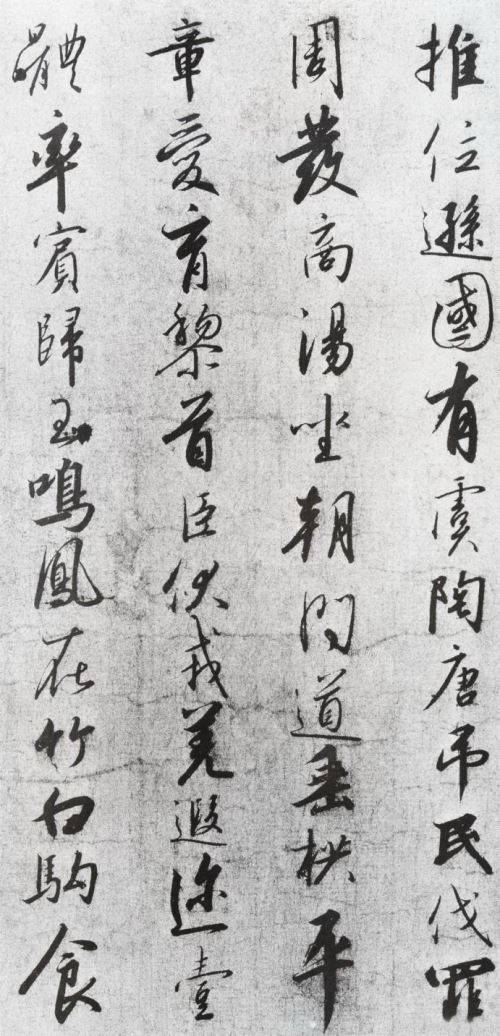 推位遜國有虞陶唐吊民伐罪
周發商湯坐朝問道垂拱平
章愛育黎首臣伏戎羌遐迩壹
體率賓歸王鳴鳳在竹白駒食